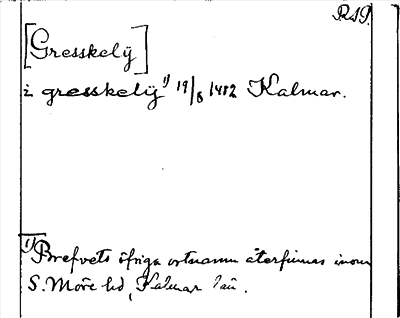 RAP.
[Gresskelÿ]
i gresskelÿ¹⁾ 19/8 1412 Kalmar.
¹⁾ Brefvets öfriga ortnamn återfinnas inom
S. Möre hd, Kalmar län.